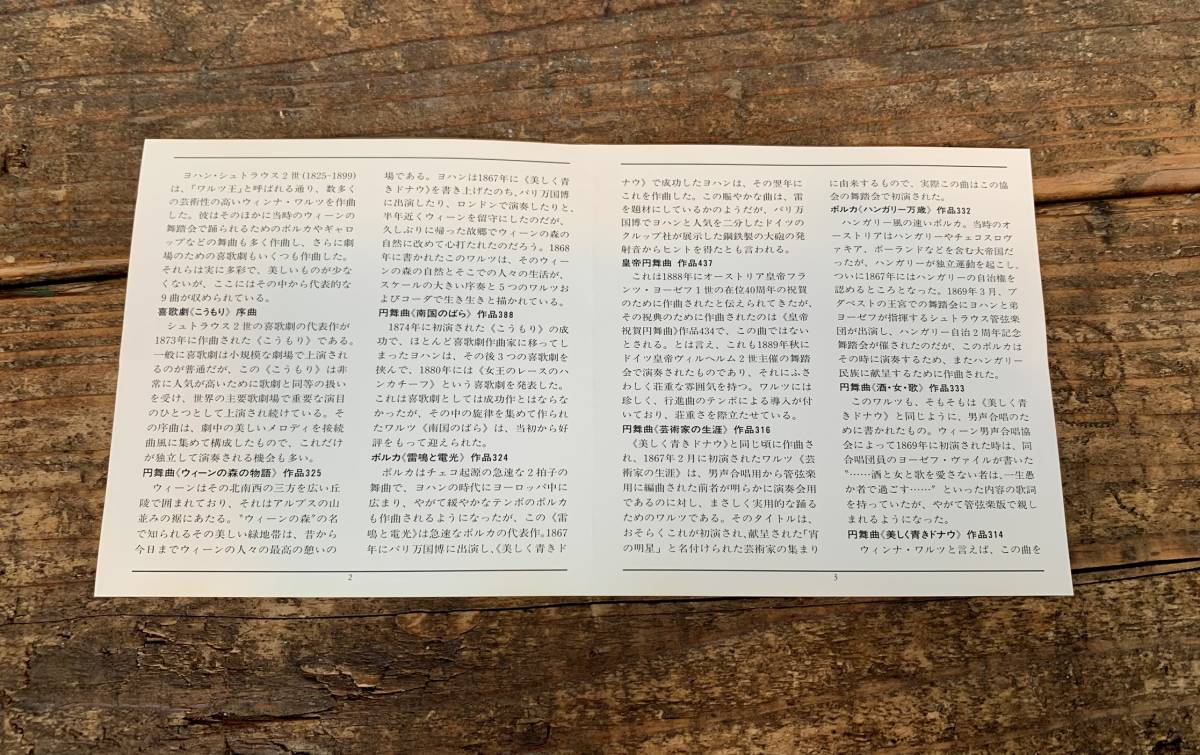 ヨハン・シュトラウス2世(1825-1899)
は、「ワルツ王」と呼ばれる通り、数多く
の芸術性の高いウィンナ・ワルツを作曲
した。彼はそのほかに当時のウィーンの
舞踏会で踊られるためのポルカやギャロ
ップなどの舞曲も多く作曲し、さらに劇
場のための喜歌劇もいくつも作曲した。
それらは実に多彩で、美しいものが少な
くないが、ここにはその中から代表的な
9曲が収められている。
喜歌劇《こうもり》序曲
シュトラウス2世の喜歌劇の代表作が
1873年に作曲された《こうもり》である。
一般に喜歌劇は小規模な劇場で上演され
るのが普通だが、この《こうもり》は非
常に人気が高いために歌劇と同等の扱い
を受け、世界の主要歌劇場で重要な演目
のひとつとして上演され続けている。そ
の序曲は、劇中の美しいメロディを接続
曲風に集めて構成したもので、これだけ
が独立して演奏される機会も多い。
円舞曲《ウィーンの森の物語》作品325
ウィーンはその北南西の三方を広い丘
陵で囲まれており、それはアルプスの山
並みの裾にあたる。“ウィーンの森”の名
で知られるその美しい緑地帯は、昔から
今日までウィーンの人々の最高の憩いの
場である。ヨハンは1867年に《美しく青
きドナウ》を書き上げたのち、パリ万国博
に出演したり、ロンドンで演奏したりと、
半年近くウィーンを留守にしたのだが、
久しぶりに帰った故郷でウィーンの森の
自然に改めて心打たれたのだろう。1868
年に書かれたこのワルツは、そのウィー
ンの森の自然とそこでの人々の生活が、
スケールの大きい序奏と5つのワルツお
よびコーダで生き生きと描かれている。
円舞曲《南国のばら》作品388
1874年に初演された《こうもり》の成
功で、ほとんど喜歌劇作曲家に移ってし
まったヨハンは、その後3つの喜歌劇を
挟んで、1880年には《女王のレースのハ
ンカチーフ》という喜歌劇を発表した。
これは喜歌劇としては成功作とはならな
かったが、その中の旋律を集めて作られ
たワルツ《南国のばら》は、当初から好
評をもって迎えられた。
ポルカ《雷鳴と電光》作品324
ポルカはチェコ起源の急速な2拍子の
舞曲で、ヨハンの時代にヨーロッパ中に
広まり、やがて緩やかなテンポのポルカ
も作曲されるようになったが、この《雷
鳴と電光》は急速なポルカの代表作。1867
年にパリ万国博に出演し、《美しく青きド
2
ナウ》で成功したヨハンは、その翌年に
これを作曲した。この賑やかな曲は、雷
を題材にしているかのようだが、パリ万
国博でヨハンと人気を二分したドイツの
クルップ社が展示した鋼鉄製の大砲の発
射音からヒントを得たとも言われる。
皇帝円舞曲 作品437
これは1888年にオーストリア皇帝フラ
ンツ・ヨーゼフ1世の在位40周年の祝賀
のために作曲されたと伝えられてきたが、
その祝典のために作曲されたのは《皇帝
祝賀円舞曲》作品434で、この曲ではない
とされる。とは言え、これも1889年秋に
ドイツ皇帝ヴィルヘルム2世主催の舞踏
会で演奏されたものであり、それにふさ
わしく荘重な雰囲気を持つ。ワルツには
珍しく、行進曲のテンポによる導入が付
いており、荘重さを際立たせている。
円舞曲《芸術家の生涯》作品316
《美しく青きドナウ》と同じ頃に作曲さ
れ、1867年2月に初演されたワルツ《芸
術家の生涯》は、男声合唱用から管弦楽
用に編曲された前者が明らかに演奏会用
であるのに対し、まさしく実用的な踊る
ためのワルツである。そのタイトルは、
おそらくこれが初演され、献呈された「宵
の明星」と名付けられた芸術家の集まり
に由来するもので、実際この曲はこの協
会の舞踏会で初演された。
ポルカ《ハンガリー万歳》作品332
ハンガリー風の速いポルカ。当時のオ
ーストリアはハンガリーやチェコスロヴ
ァキア、ポーランドなどを含む大帝国だ
ったが、ハンガリーが独立運動を起こし、
ついに1867年にはハンガリーの自治権を
認めるところとなった。1869年3月、ブ
ダペストの王宮での舞踏会にヨハンと弟
ヨーゼフが指揮するシュトラウス管弦楽
団が出演し、ハンガリー自治2周年記念
舞踏会が催されたのだが、このポルカは
その時に演奏するため、またハンガリー
民族に献呈するために作曲された。
円舞曲《酒・女・歌》作品333
このワルツも、そもそもは《美しく青
きドナウ》と同じように、男声合唱のため
に書かれたもの。ウィーン男声合唱協
会によって1869年に初演された時は、同
合唱団員のヨーゼフ・ヴァイルが書いた
“……酒と女と歌を愛さない者は、一生愚
か者で過ごす……”といった内容の歌詞
を持っていたが、やがて管弦楽版で親し
まれるようになった。
円舞曲《美しく青きドナウ》作品314
ウィンナ・ワルツと言えば、この曲を
3